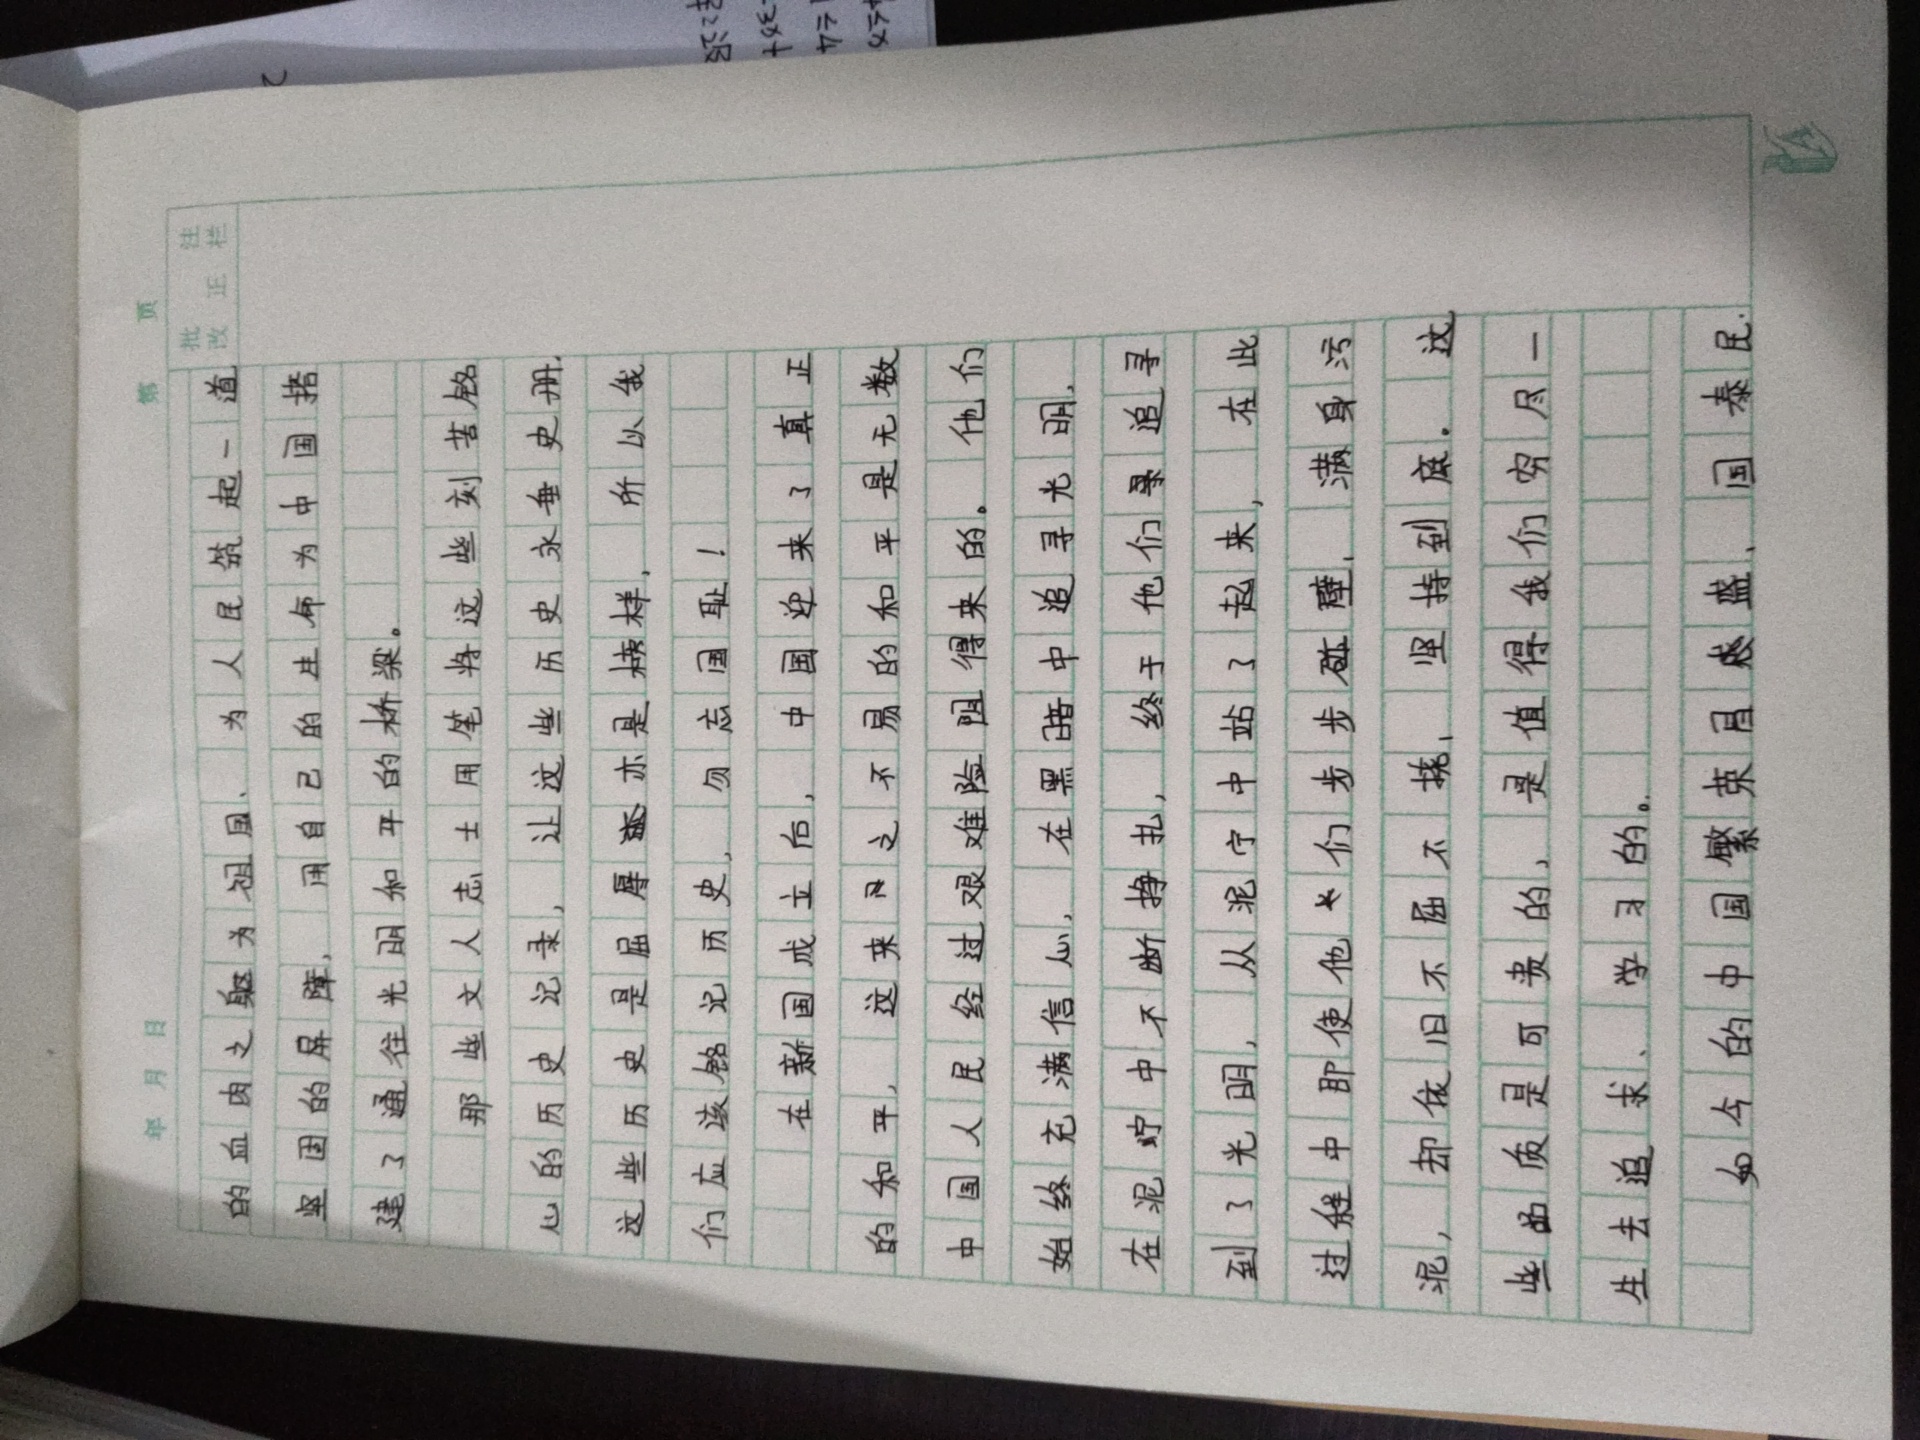 年 月 日
第 页
批 注
改 正 栏
的血肉之躯为祖国、为人民筑起一道
坚固的屏障,用自己的生命为中国搭
建了通往光明和平的桥梁。
那些文人志士用笔将这些刻苦铭
心的历史记录,让这些历史永垂史册,
这些历史是屈辱亦是榜样,所以我
们应该铭记历史,勿忘国耻!
在新国成立后,中国迎来了真正
的和平,这来之不易的和平是无数
中国人民经过艰难险阻得来的。他们
始终充满信心,在黑暗中追寻光明,
在泥泞中不断挣扎,终于他们追寻
到了光明,从泥泞中站了起来,在此
过程中即使他们步步碰壁,满身污
泥,却依旧不屈不挠,坚持到底。这
些品质是可贵的,是值得我们穷尽一
生去追求、学习的。
如今的中国繁荣昌盛、国泰民